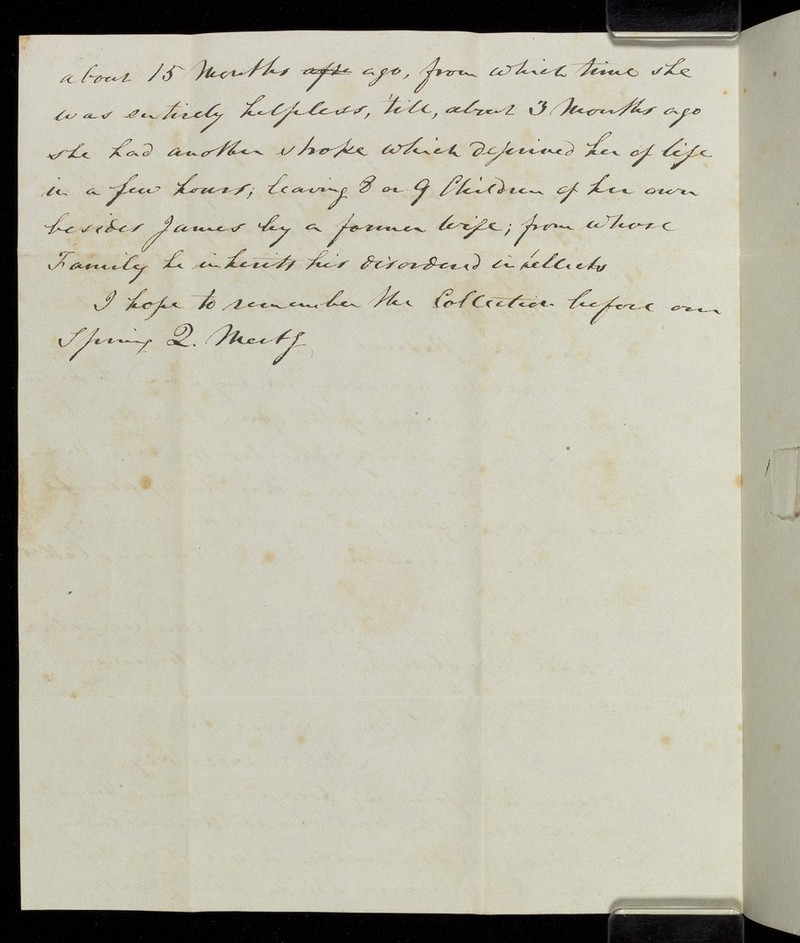 about 15 Months afte ago, from which time she
was entirely helpless, 'till, about 3 Months ago
she had another stroke which deprived her of life
in a few hours; leaving 8 or 9 Children of her own
besides James by a former wife; from whose
Family he inherits his disordered intellects
I hope to remember the Collection before our
Spring Q. Meetg